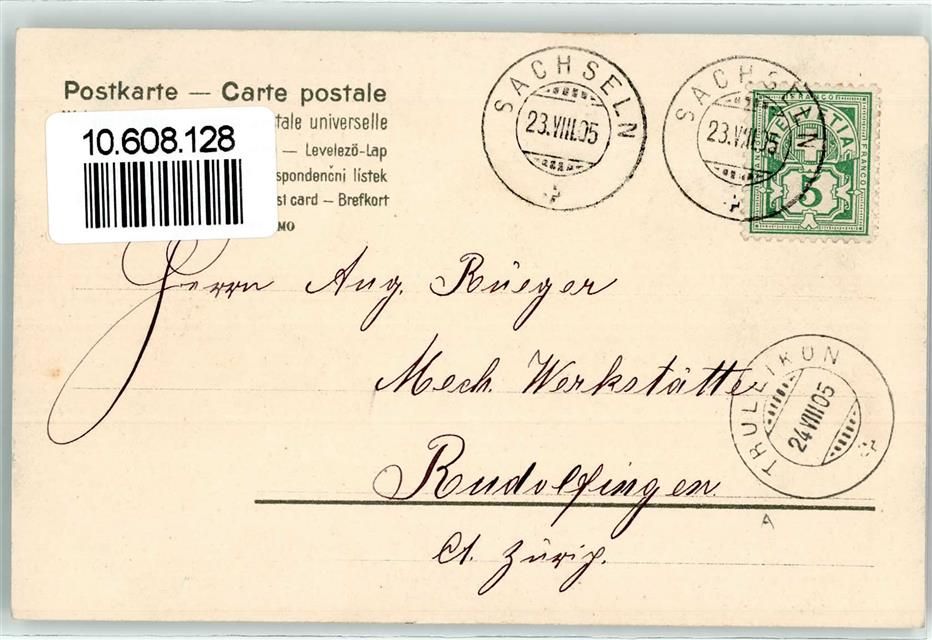 Postkarte — Carte postale
tale universelle
— Levelezö-Lap
spondenční lístek
st card — Brefkort
MO
10.608.128
SACHSELN
23.VIII.05
SACHSELN
23.VIII.05
FRANCO
FRANCO
5
Herrn Aug. Rüeger
Mech. Werkstätte
Rudolfingen
Ct. Zürich.
TRULLIKON
24 VIII 05
A